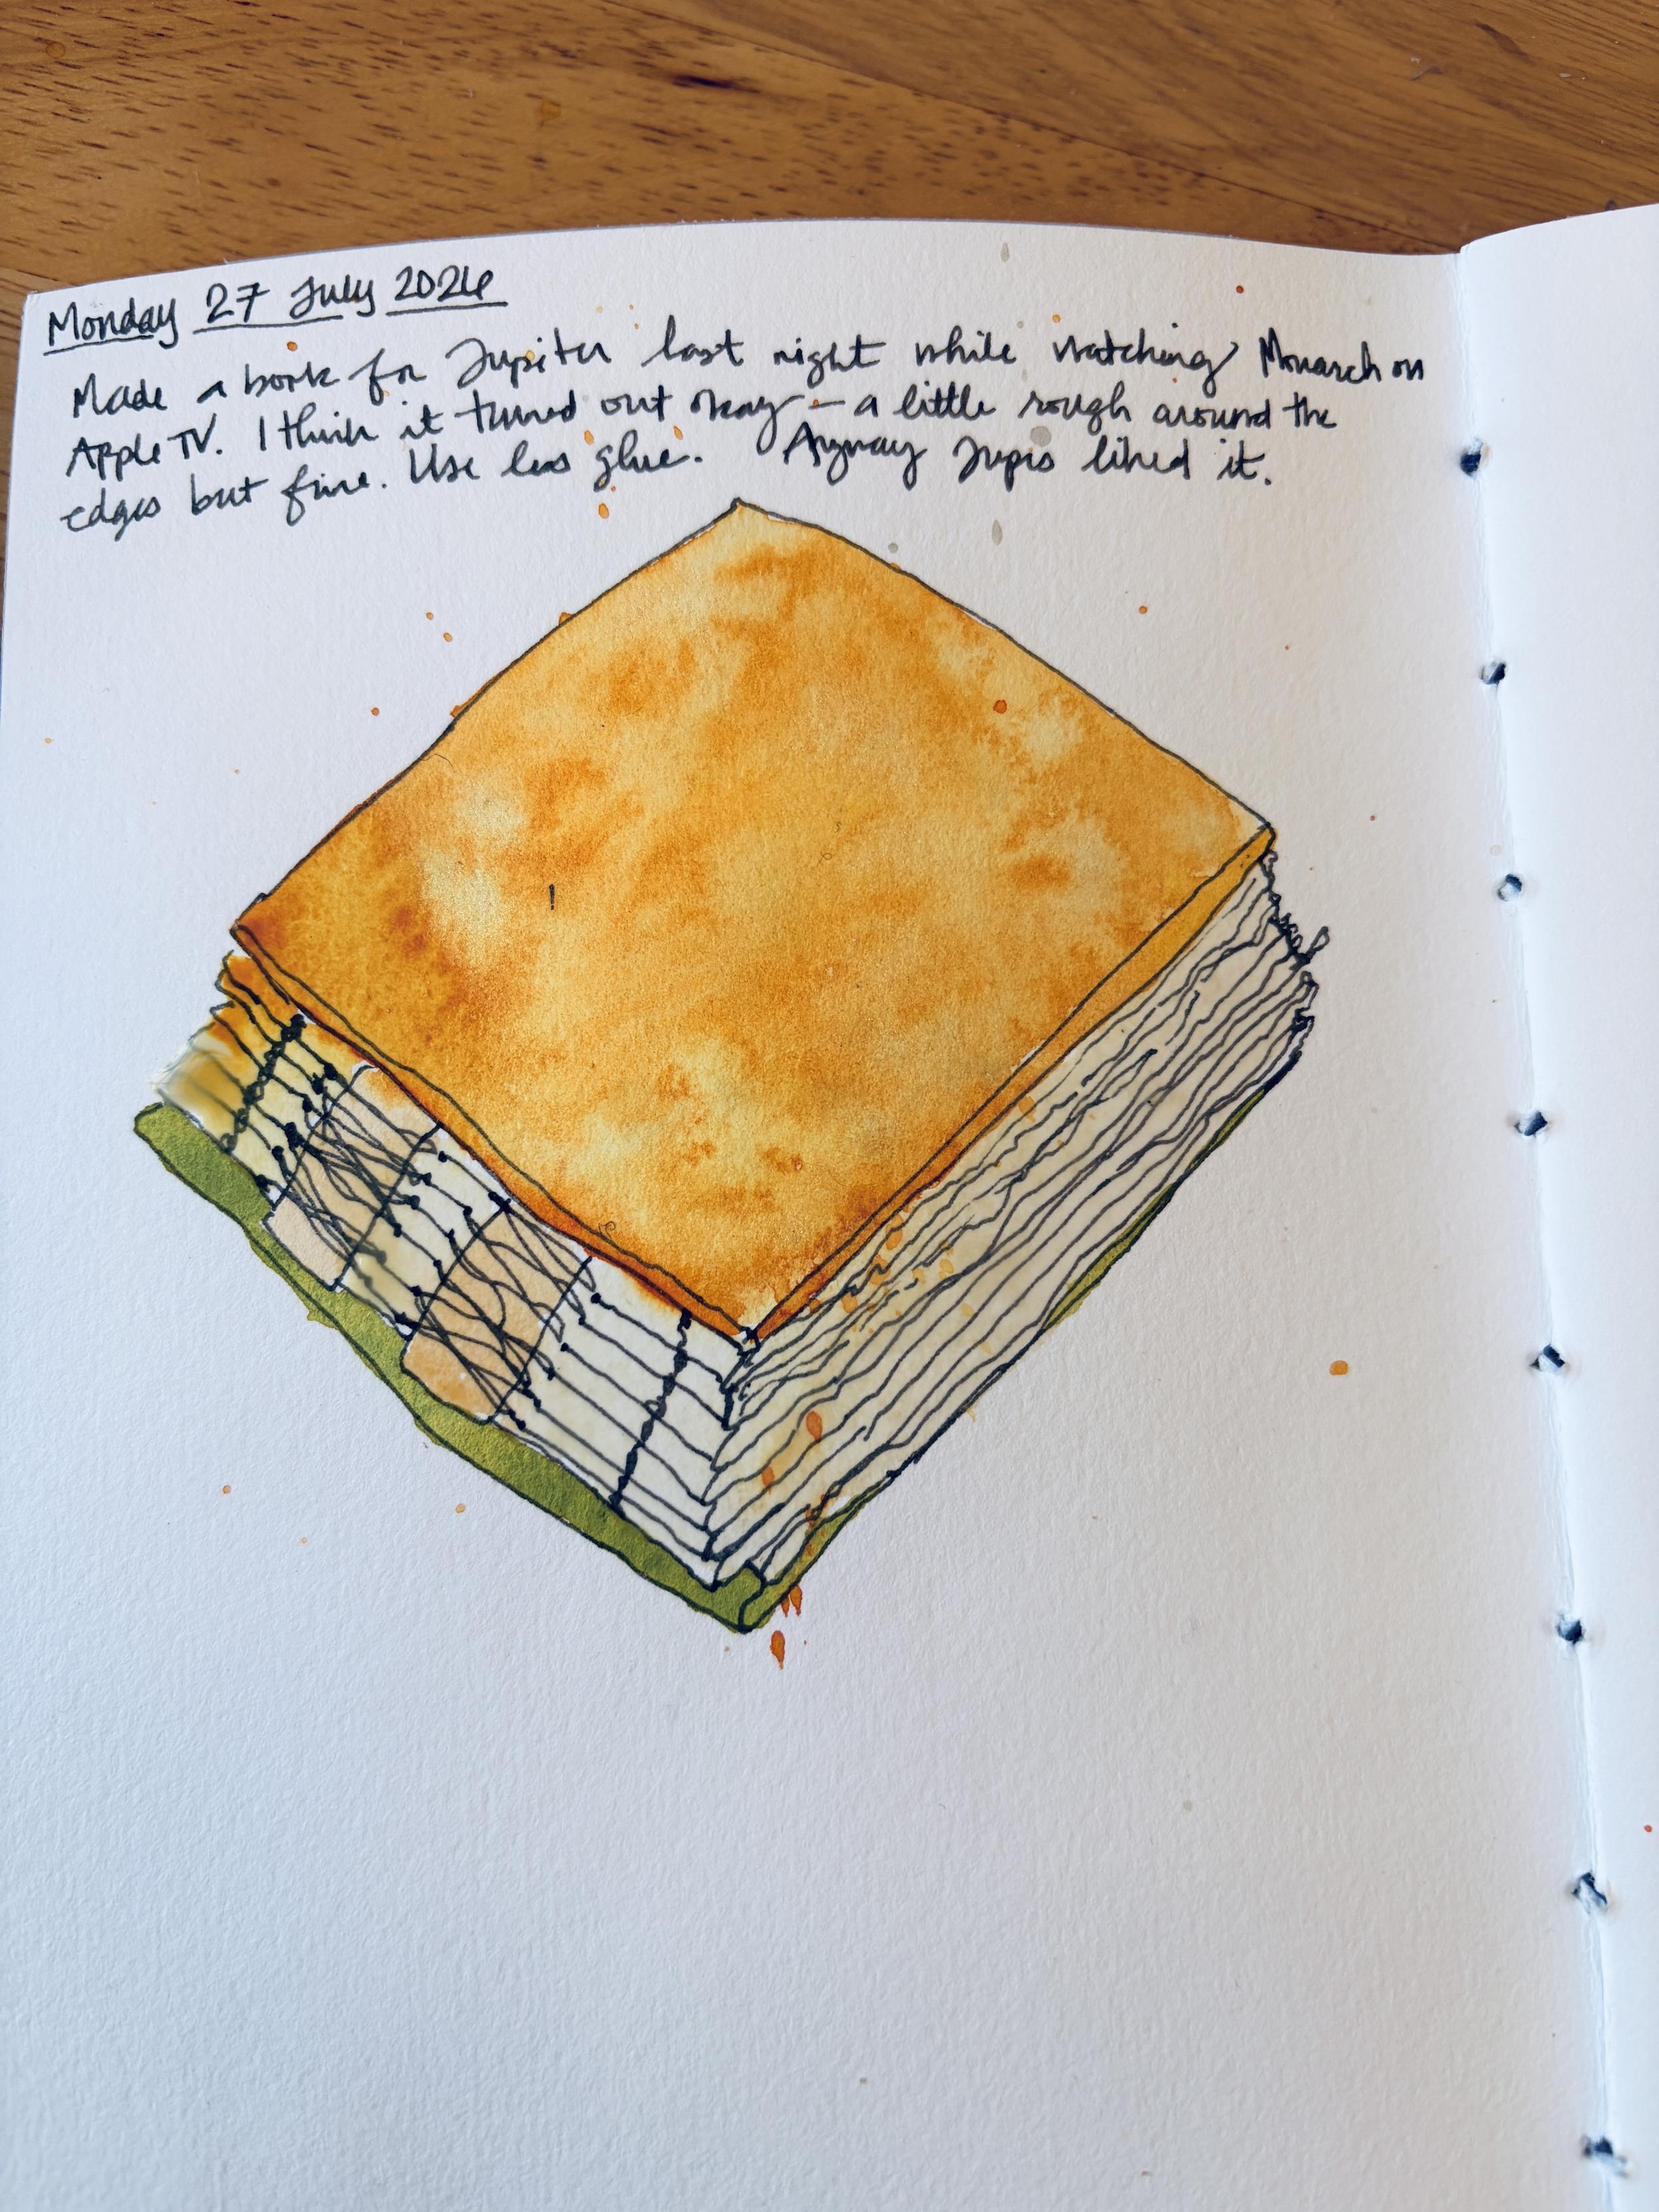 Monday 27 July 2026
Made a book for Jupiter last night while watching Monarch on
Apple TV. I think it turned out okay – a little rough around the
edges but fine. Use less glue. Anyway Jupes liked it.